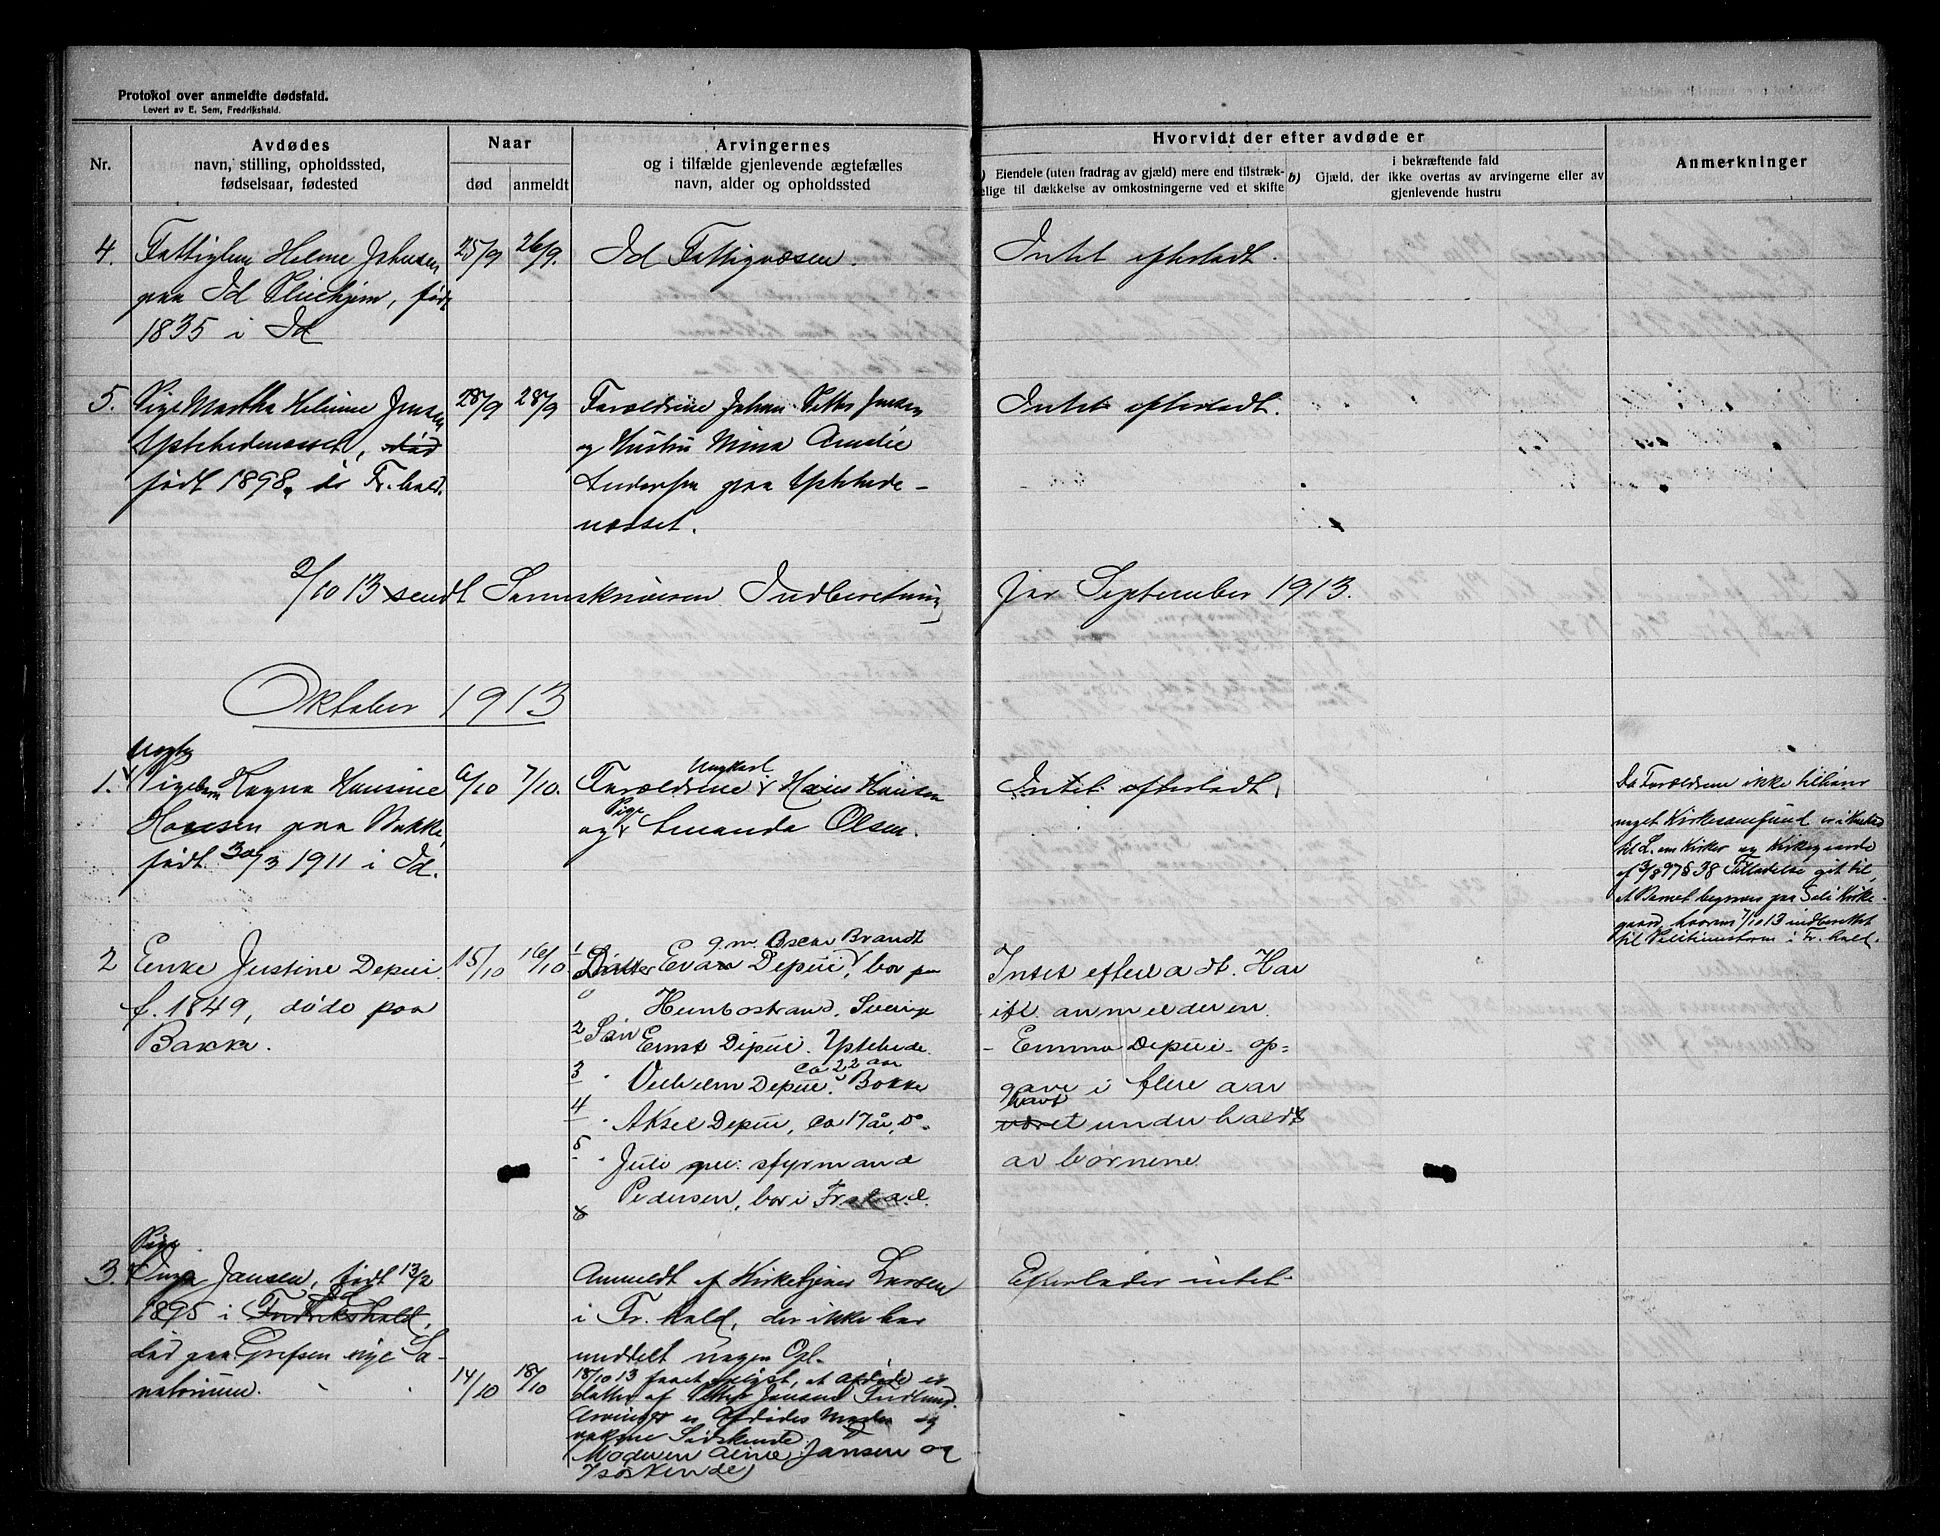 Protokol over anmeldte dødsfald.
Levert av E. Sem, Fredrikshald.
Nr.
Avdødes
navn, stilling, opholdssted,
fødselsaar, fødested
Naar
død
anmeldt
Arvingernes
og i tilfælde gjenlevende ægtefælles
navn, alder og opholdssted
Hvorvidt der efter avdøde er
a) Eiendele (uten fradrag av gjæld) mere end tilstræk-
kelige til dækkelse av omkostningerne ved et skifte
b) Gjæld, der
i bekræftende fald
ikke overtas av arvingerne eller av
gjenlevende hustru
Anmerkninger
4.
Fattiglem Helene Johnsen
paa Id Pleiehjem, født
1835 i Id
25/9
26/9.
Id Fattigvæsen.
Intet efterladt.
5.
Pige Martha Helene Jensen
Ystehedneset, død
født 1898. i Fr.hald.
28/9
28/9
Forældrene Johan Petter Jensen
og Hustru Mina Amalie
Andersen paa Ystehede-
næsset.
Intet efterladt.
2/10 13 sendt Sorenskriveren Indberetning
for September 1913.
Oktober 1913
1.
Pigebarn Ragna Hansine
Hansen paa Bakke,
født 30/3 1911 i Id.
6/10
7/10.
Ungkarl
Forældrene Hans Hansen
Pige
og Amanda Olsen.
Intet efterladt.
Da Forældrene ikke tilhører
noget Kirkesamfund er i Henhold
til L. om Kirker og Kirkegaarde
af 3/8 97 § 38 Tilladelse git til,
at Barnet begraves paa Idd Kirke-
gaard, hvorom 7/10 13 indberettet
til Politimesteren i Fr.hald.
2
Enke Justine Depui
f. 1849, døde paa
Bakke.
15/10
16/10
g.m. Oscar Brandt
1 Datter Eva Depui, bor paa
Hunbostrand, Sverige
2 Søn Ernst Depui. Ystehede.
ca 22 aar
3 Vilhelm Depui. Bakke
4 Aksel Depui, ca 17 år, Do.
5 Juli gm. styrmand
Pedersen, bor i Frhald.
6
Intet efterladt. Har
ifl. anmelderen
- Emma Depui - op-
gave i flere aar
havt
været underholdt
av børnene.
3.
Pige
Jansen, født 13/2
Id
1895 i Fredrikshald,
død paa Grefsen nye Sa-
natorium.
14/10
18/10
Anmeldt af Kirketjener Larsen
i Fr.hald, der ikke har
meddelt nogen Opl.
18/10 13 faaet oplyst, at Afdøde er
datter af Petter Jansen
Arvinger er Afdødes Moder og
voksne Sødskende.
Moderen Jansen og
7 søskende
Efterlader intet.